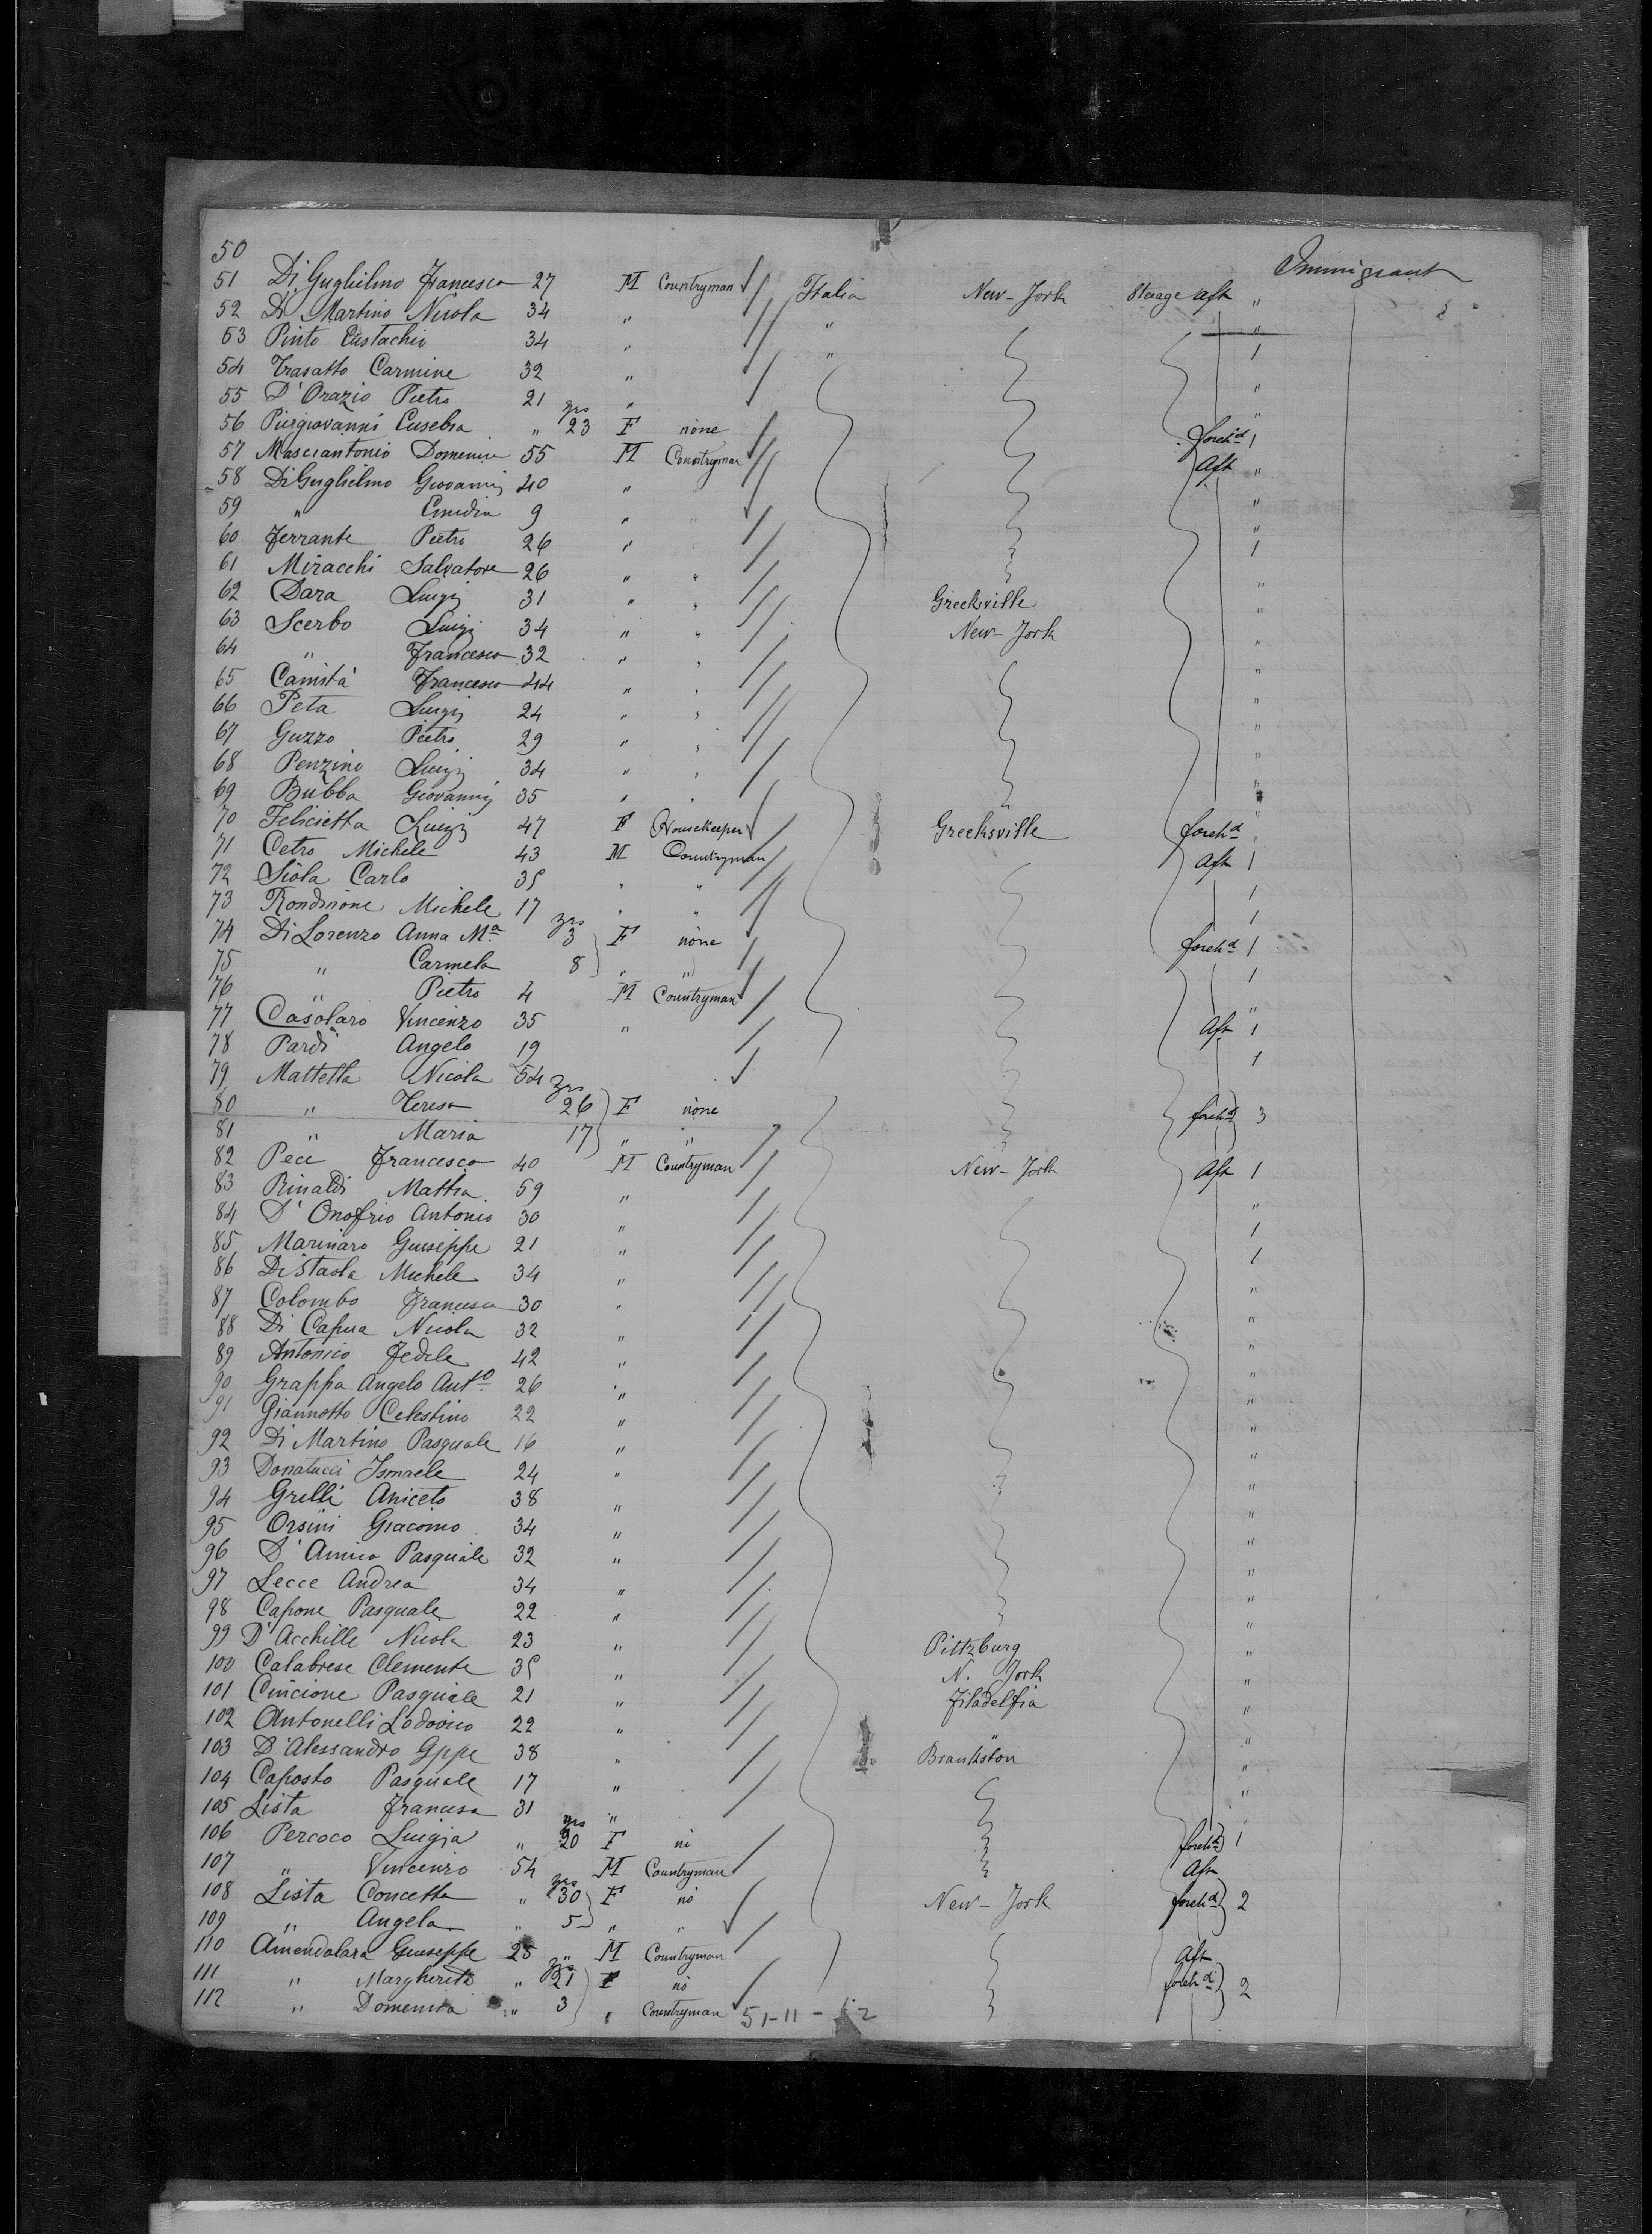 50 Immigrant
51 Di Guglielmo Francesco 27 M Countryman Italia New-York Steerage aft "
52 Di Martino Nicola 34 " " "
53 Pinto Eustachio 34 " " 1
54 Trasatto Carmine 32 " "
55 D'Orazio Pietro 21 " "
56 Piergiovanni Eusebia " yrs 23 F none foreh.d 1
57 Masciantonio Domenico 55 M Countryman Aft "
58 Di Guglielmo Giovanni 40 " "
59 " Emidio 9 " " "
60 Ferrante Pietro 26 " 1
61 Miracchi Salvatore 26 " " "
62 Dara Luigi 31 " " Greeksville "
63 Scerbo Luigi 34 " " New-York "
64 " Francesco 32 " " "
65 Camità Francesco 44 " " "
66 Peta Luigi 24 " " "
67 Guzzo Pietro 29 " " "
68 Penzino Luigi 34 " " "
69 Bubba Giovanni 35 " " "
70 Felicietta Luigi 47 F Housekeeper Greeksville foreh.d "
71 Cetro Michele 43 M Countryman Aft 1
72 Siola Carlo 35 " " 1
73 Rondinone Michele 17 " " 1
74 Di Lorenzo Anna Ma. yrs 3 F none foreh.d 1
75 " Carmela 8 " " 1
76 " Pietro 4 M Countryman "
77 Casolaro Vincenzo 35 " Aft 1
78 Pardi Angelo 19 1
79 Mattetta Nicola 54
80 " Teresa yrs 26 F none foreh.d 3
81 " Maria 17 " "
82 Pece Francesco 40 M Countryman New-York Aft 1
83 Rinaldi Mattia 59 " "
84 D'Onofrio Antonio 30 " 1
85 Marinaro Giuseppe 21 " 1
86 Di Staola Michele 34 " "
87 Colombo Francesco 30 " "
88 Di Capua Nicola 32 " "
89 Antonico Fedele 42 " "
90 Grappa Angelo Anto. 26 " "
91 Giannotto Celestino 22 " "
92 Di Martino Pasquale 16 " "
93 Donatucci Ismaele 24 " "
94 Grilli Aniceto 38 " "
95 Orsini Giacomo 34 " "
96 D'Amico Pasquale 32 " "
97 Lecce Andrea 34 " "
98 Capone Pasquale 22 " "
99 D'Acchille Nicola 23 " Pittzburg "
100 Calabrese Clemente 35 " N. York "
101 Cincione Pasquale 21 " Filadelfia "
102 Antonelli Lodovico 22 " " "
103 D'Alessandro Gppe 38 " Brankston "
104 Caposto Pasquale 17 " "
105 Lista Francesco 31 "
106 Percoco Luigia " yrs 20 F no foreh.d 1
107 " Vincenzo 54 M Countryman Aft
108 Lista Concetta " yrs 30 F no New-York foreh.d 2
109 " Angela " 5 " "
110 Amendolara Giuseppe 25 " M Countryman Aft
111 " Margherita " yrs 21 F no foreh.d 2
112 " Domenica " 3 " Countryman 51-11-